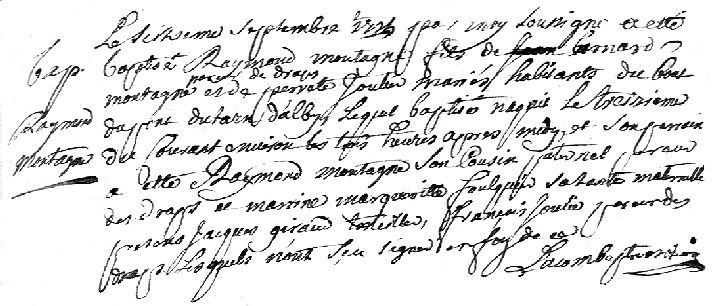 Bap.
Raymond
montagne
Le sisieme septembre par moy soussigné a eté
baptisé Raymond montagne fils de bernard
pareur de draps
montagne et de perrete Soulié mariés habitants du bout
du pont du tarn d'alby lequel baptisé naquit le tresieme
du courant environ les trois heures apres midy et son parrain
a eté Raymond montagne son Cousin paternel pareur
des draps et marrine margueritte soulié sa tante maternelle
presens Jacques giraud françois soulié pareur des
draps lesquels n'ont sçu signer en foy de ce